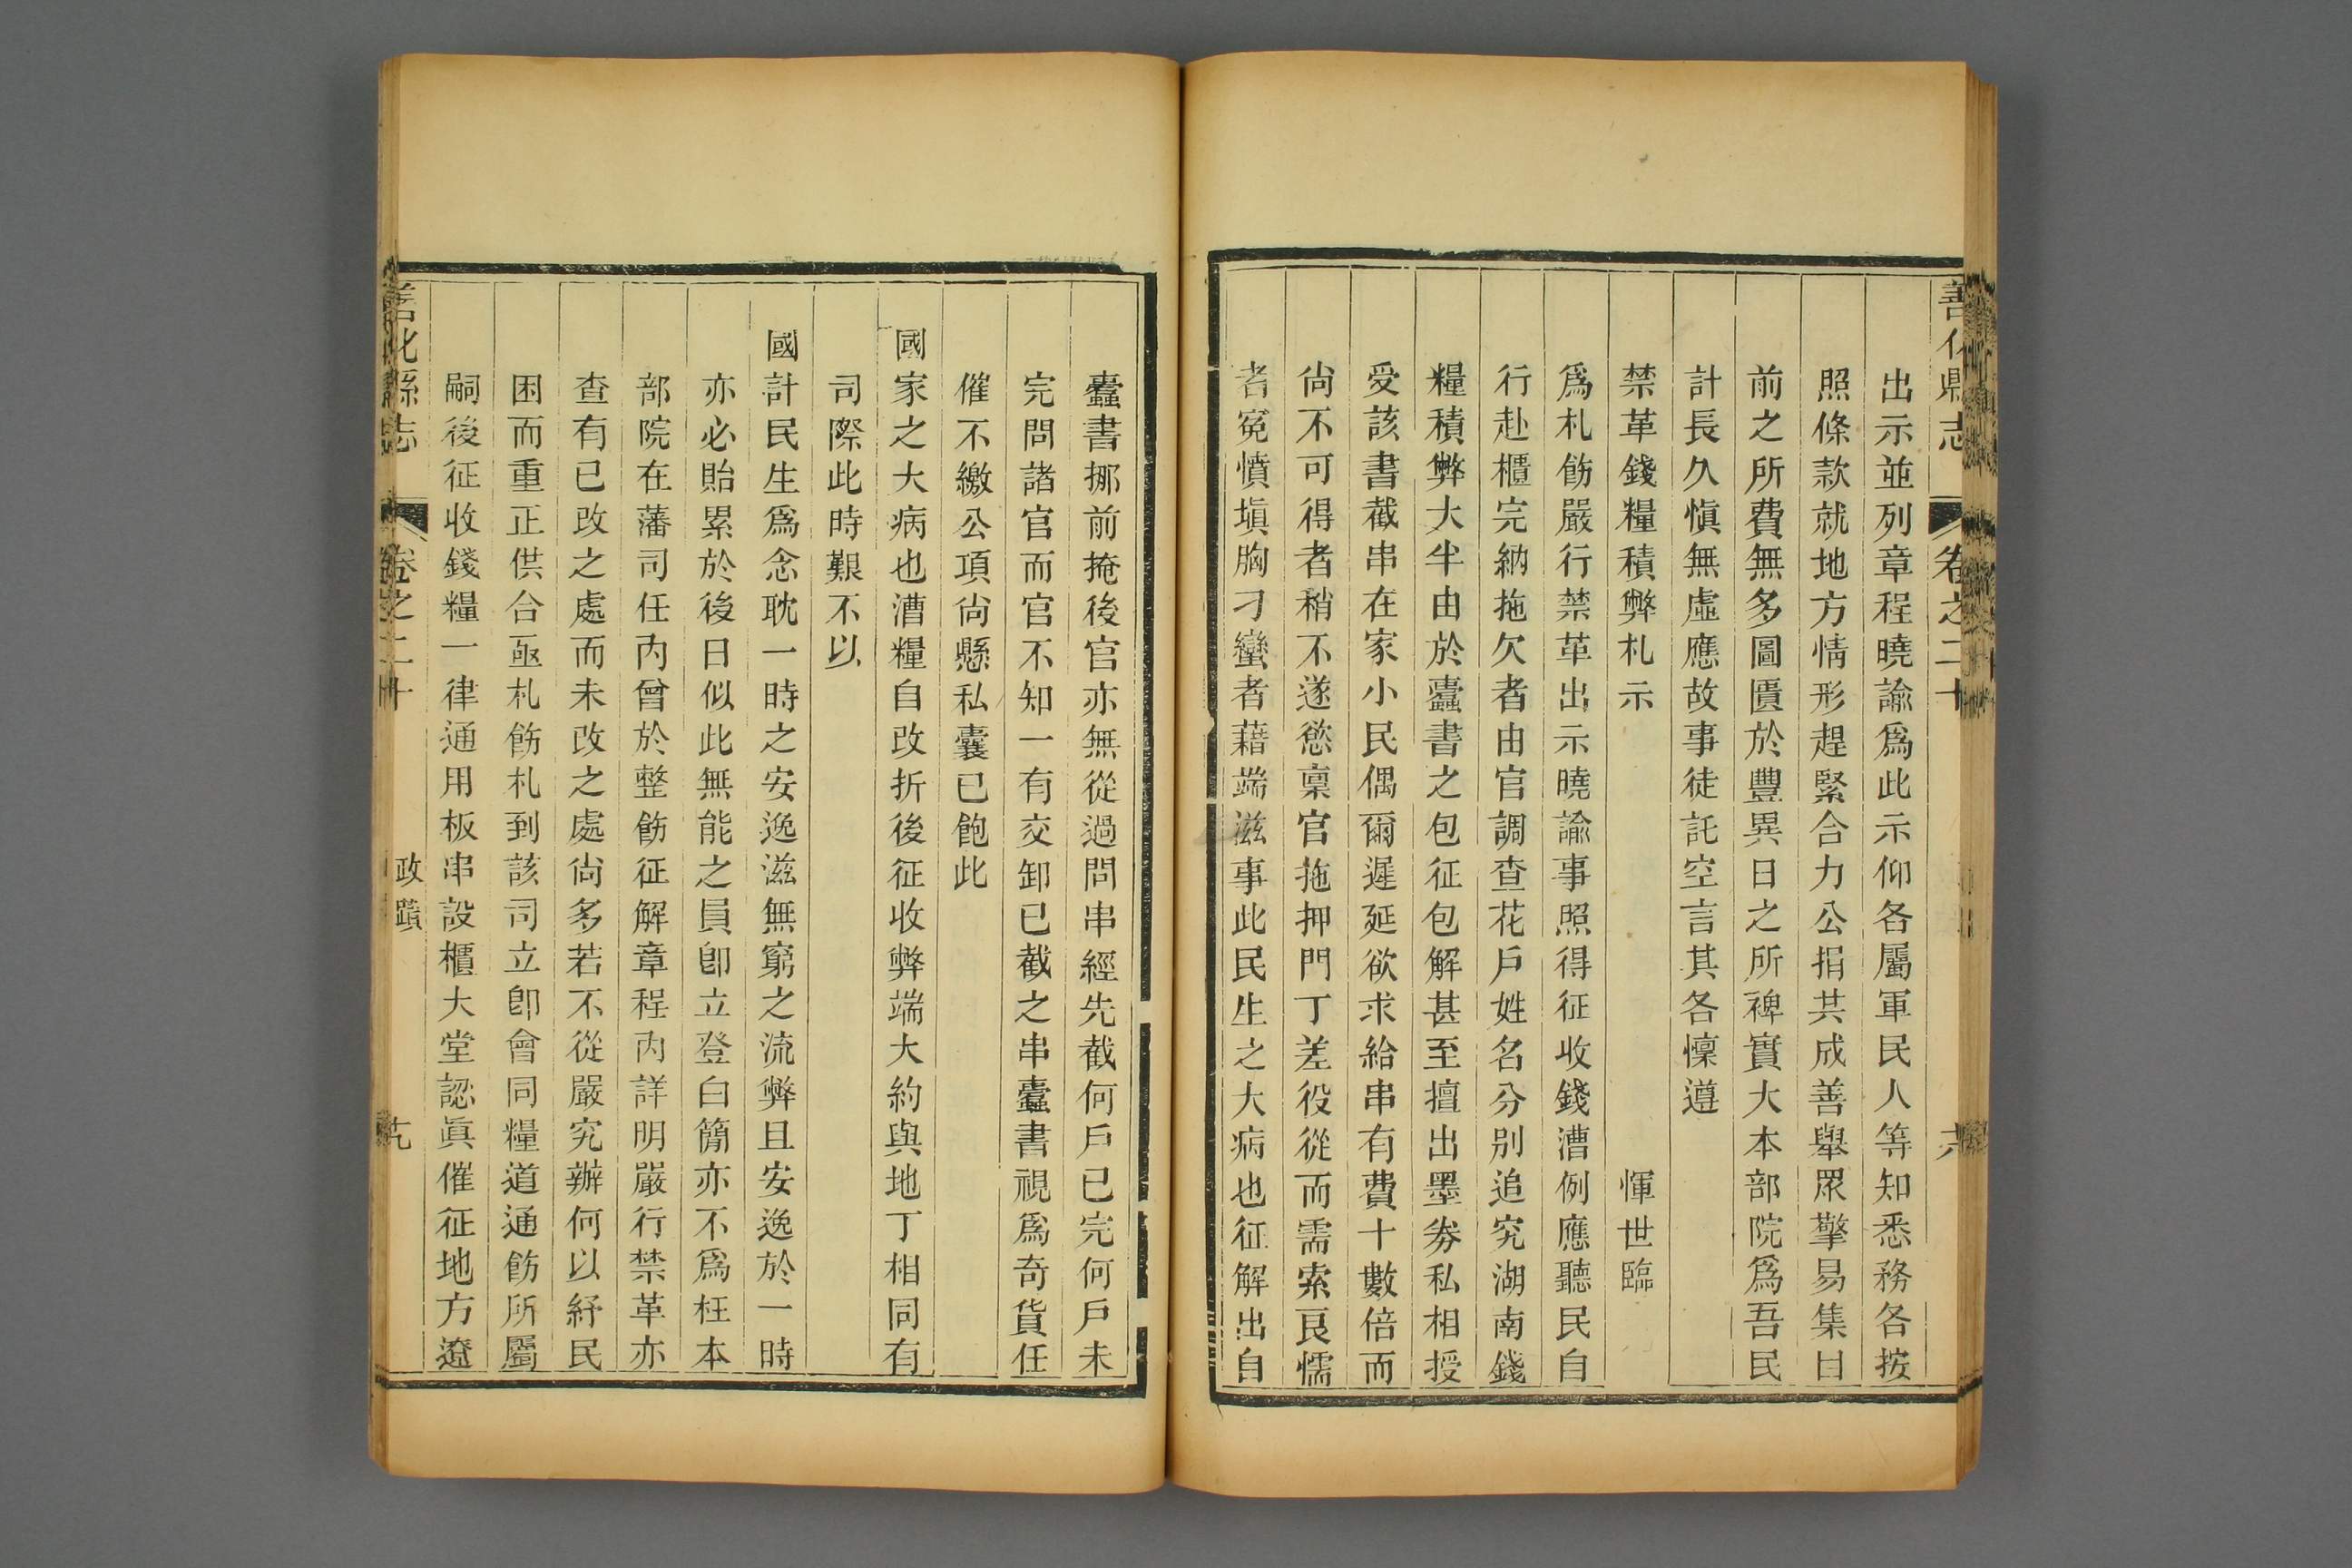 善化縣志 卷之二十
出示並列章程曉諭爲此示仰各屬軍民人等知悉務各按
照條款就地方情形趕緊合力公捐共成善舉眾擎易集日
前之所費無多圖匱於豐異日之所裨實大本部院爲吾民
計長久愼無虛應故事徒託空言其各懍遵
禁革錢糧積弊札示 惲世臨
爲札飭嚴行禁革出示曉諭事照得征收錢漕例應聽民自
行赴櫃完納拖欠者由官調查花戶姓名分別追究湖南錢
糧積弊大半由於蠹書之包征包解甚至擅出墨券私相授
受該書截串在家小民偶爾遲延欲求給串有費十數倍而
尙不可得者稍不遂慾稟官拖押門丁差役從而需索良懦
者寃憤塡胸刁蠻者藉端滋事此民生之大病也征解出自
蠹書挪前掩後官亦無從過問串經先截何戶已完何戶未
完問諸官而官不知一有交卸已截之串蠹書視爲奇貨任
催不繳公項尙懸私囊已飽此
國家之大病也漕糧自改折後征收弊端大約與地丁相同有
司際此時艱不以
國計民生爲念耽一時之安逸滋無窮之流弊且安逸於一時
亦必貽累於後日似此無能之員卽立登白簡亦不爲枉本
部院在藩司任內曾於整飭征解章程內詳明嚴行禁革亦
查有已改之處而未改之處尙多若不從嚴究辦何以紓民
困而重正供合亟札飭札到該司立卽會同糧道通飭所屬
嗣後征收錢糧一律通用板串設櫃大堂認眞催征地方遼
善化縣志 卷之二十 政蹟